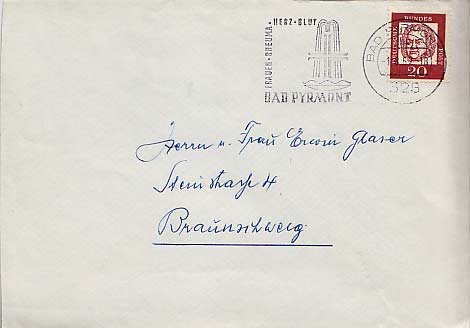 HERZ-BLUT
FRAUEN-RHEUMA-
BAD PYRMONT
BAD
328
BUNDES
POST
20
Herrn u. Frau Erwin Glaser
Steinstraße 4
Braunschweig